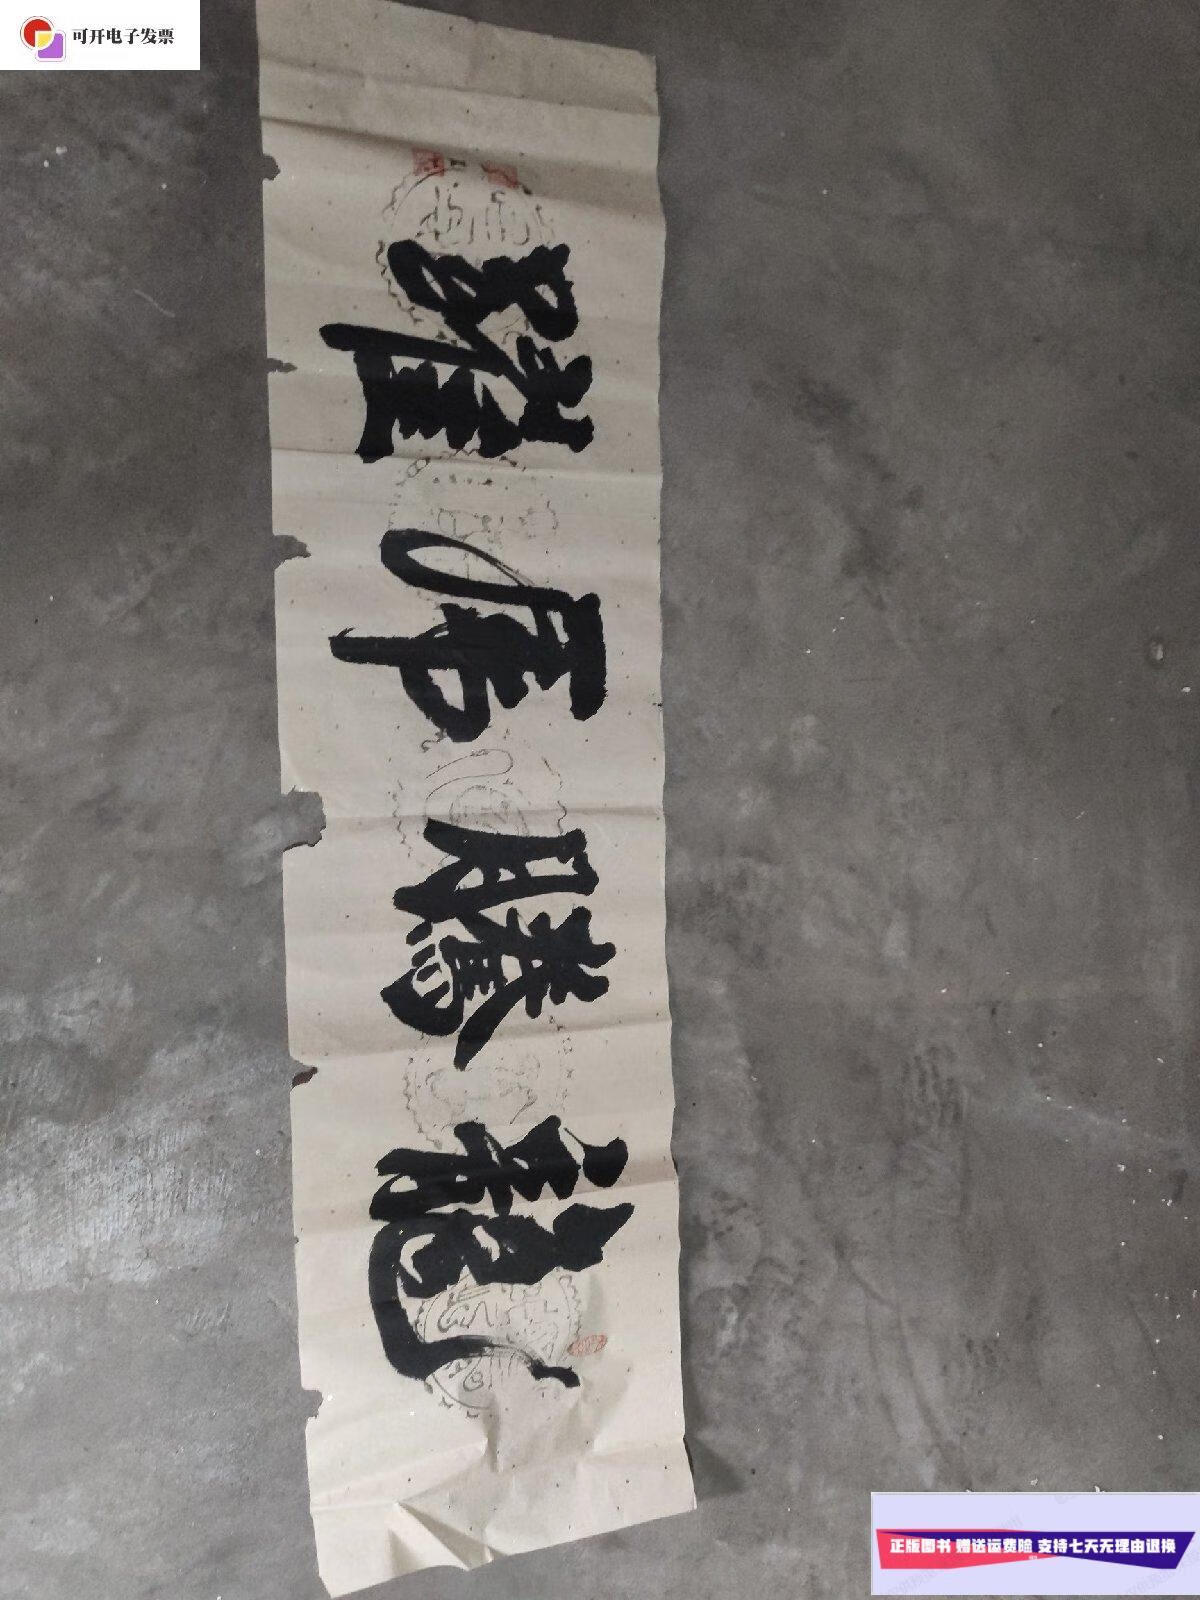 可开电子发票
龍騰虎躍
正版图书 赠送运费险 支持七天无理由退换